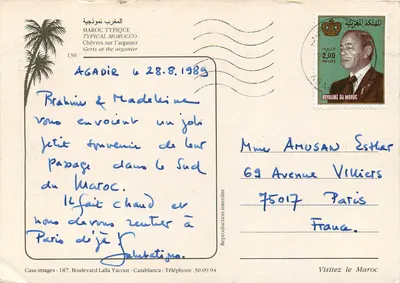 المغرب نموذجية
MAROC TYPIQUE
TYPICAL MOROCCO
Chèvres sur l'arganier
Goats at the arganier
130
AGADIR le 28.8.1989
Brahim & Madeleine
vous envoient un joli
petit souvenir de leur
passage dans le Sud
du Maroc.
Il fait chaud et
nous devons rentrer à
Paris déjà
Casa-images - 187, Boulevard Lalla Yacout - Casablanca - Téléphone : 30.09.94
Reproduction interdite
المملكة المغربية
2,00
POSTES
ROYAUME DU MAROC
Mme AMUSAN Esther
69 Avenue Villiers
75017 Paris
France.
Visitez le Maroc